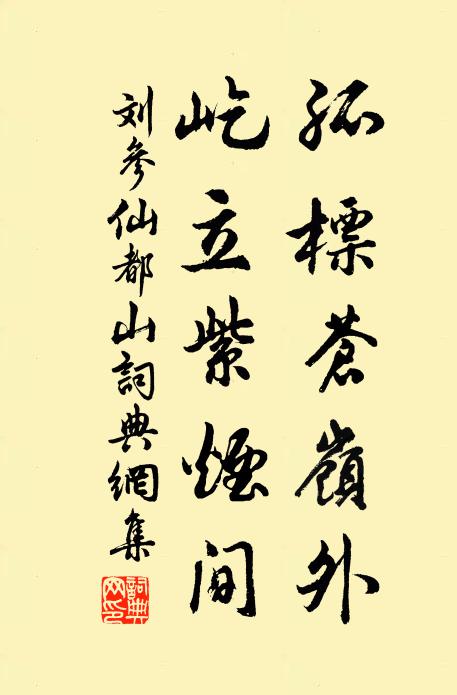 孤標蒼嶺外
屹立紫煙間
刘参仙都山詞典網集